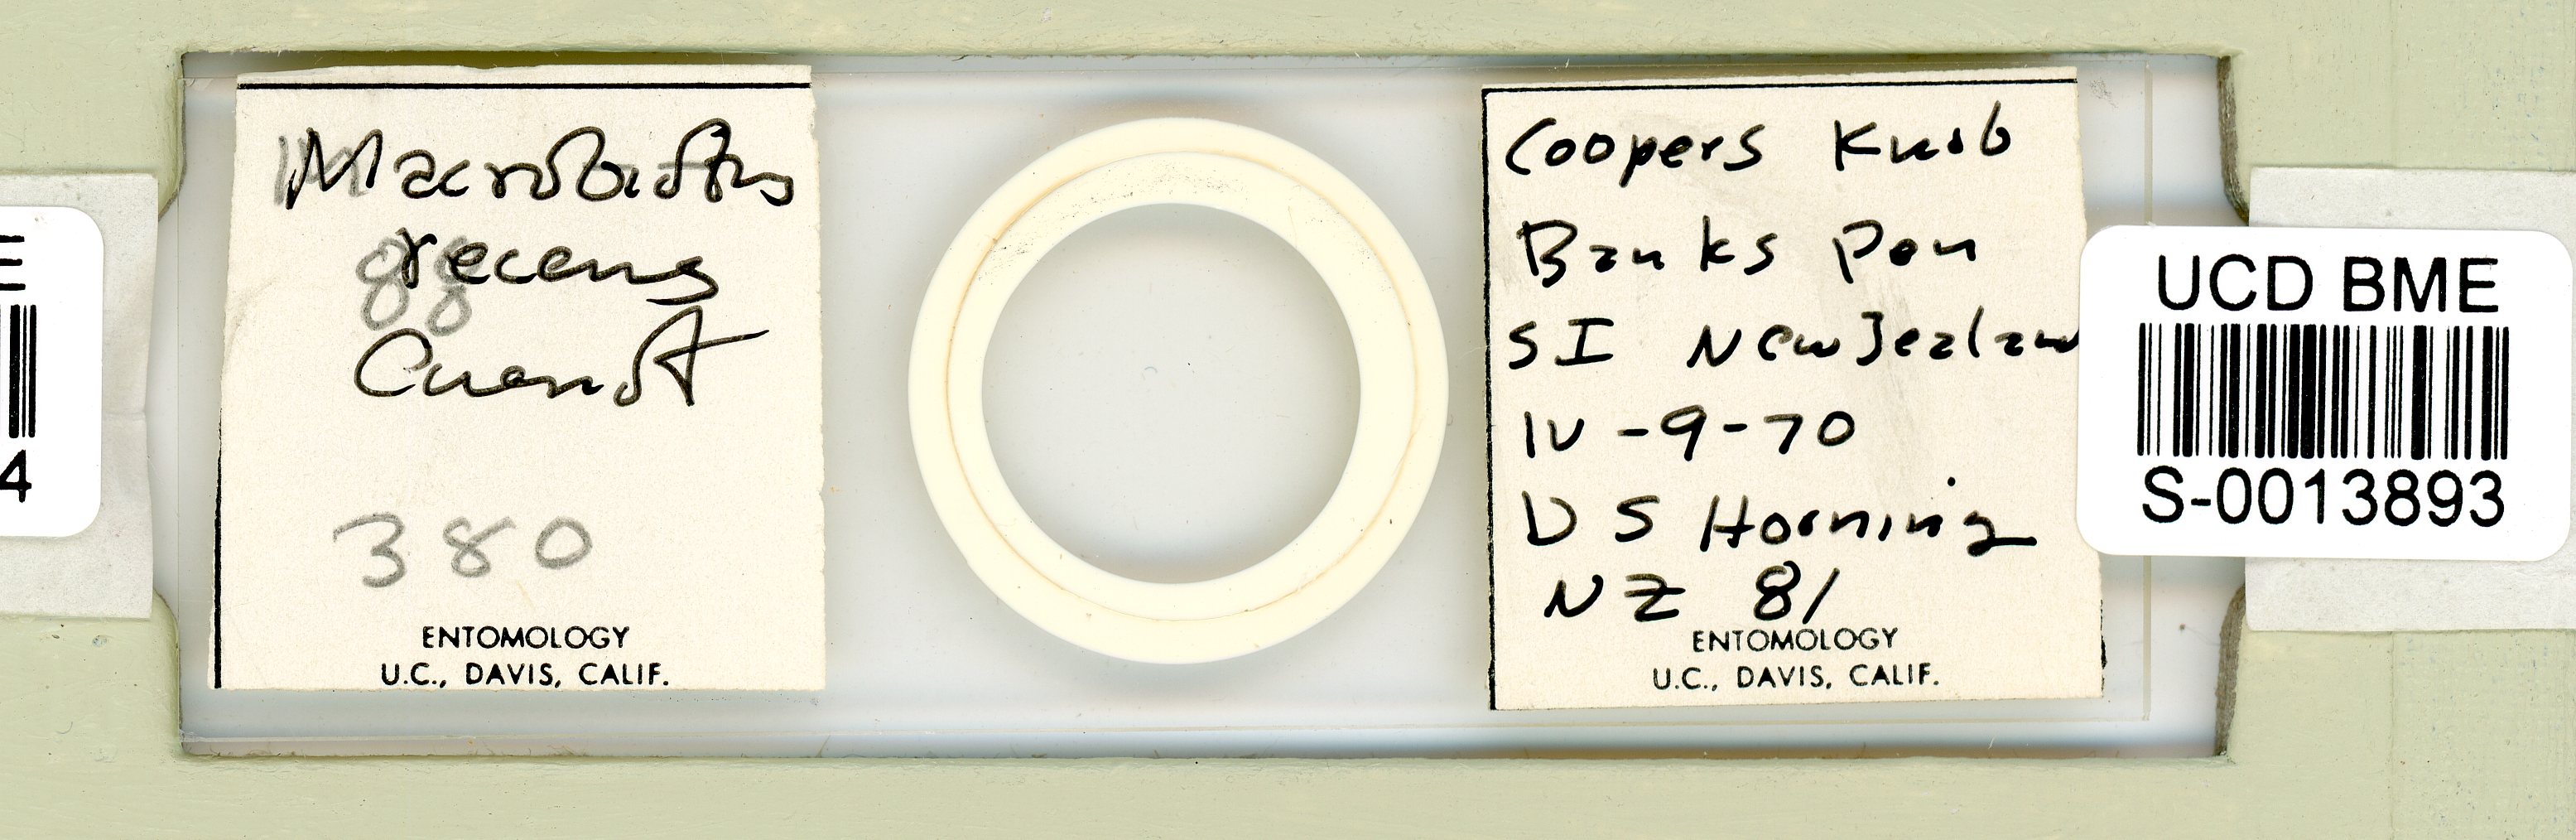 Macrobiotus
recens
Cuenot
380
ENTOMOLOGY
U.C., DAVIS, CALIF.
Coopers Knob
Banks Pen
SI New Zealan
IV-9-70
D S Horning
NZ 81
ENTOMOLOGY
U.C., DAVIS, CALIF.
UCD BME
S-0013893
E
4